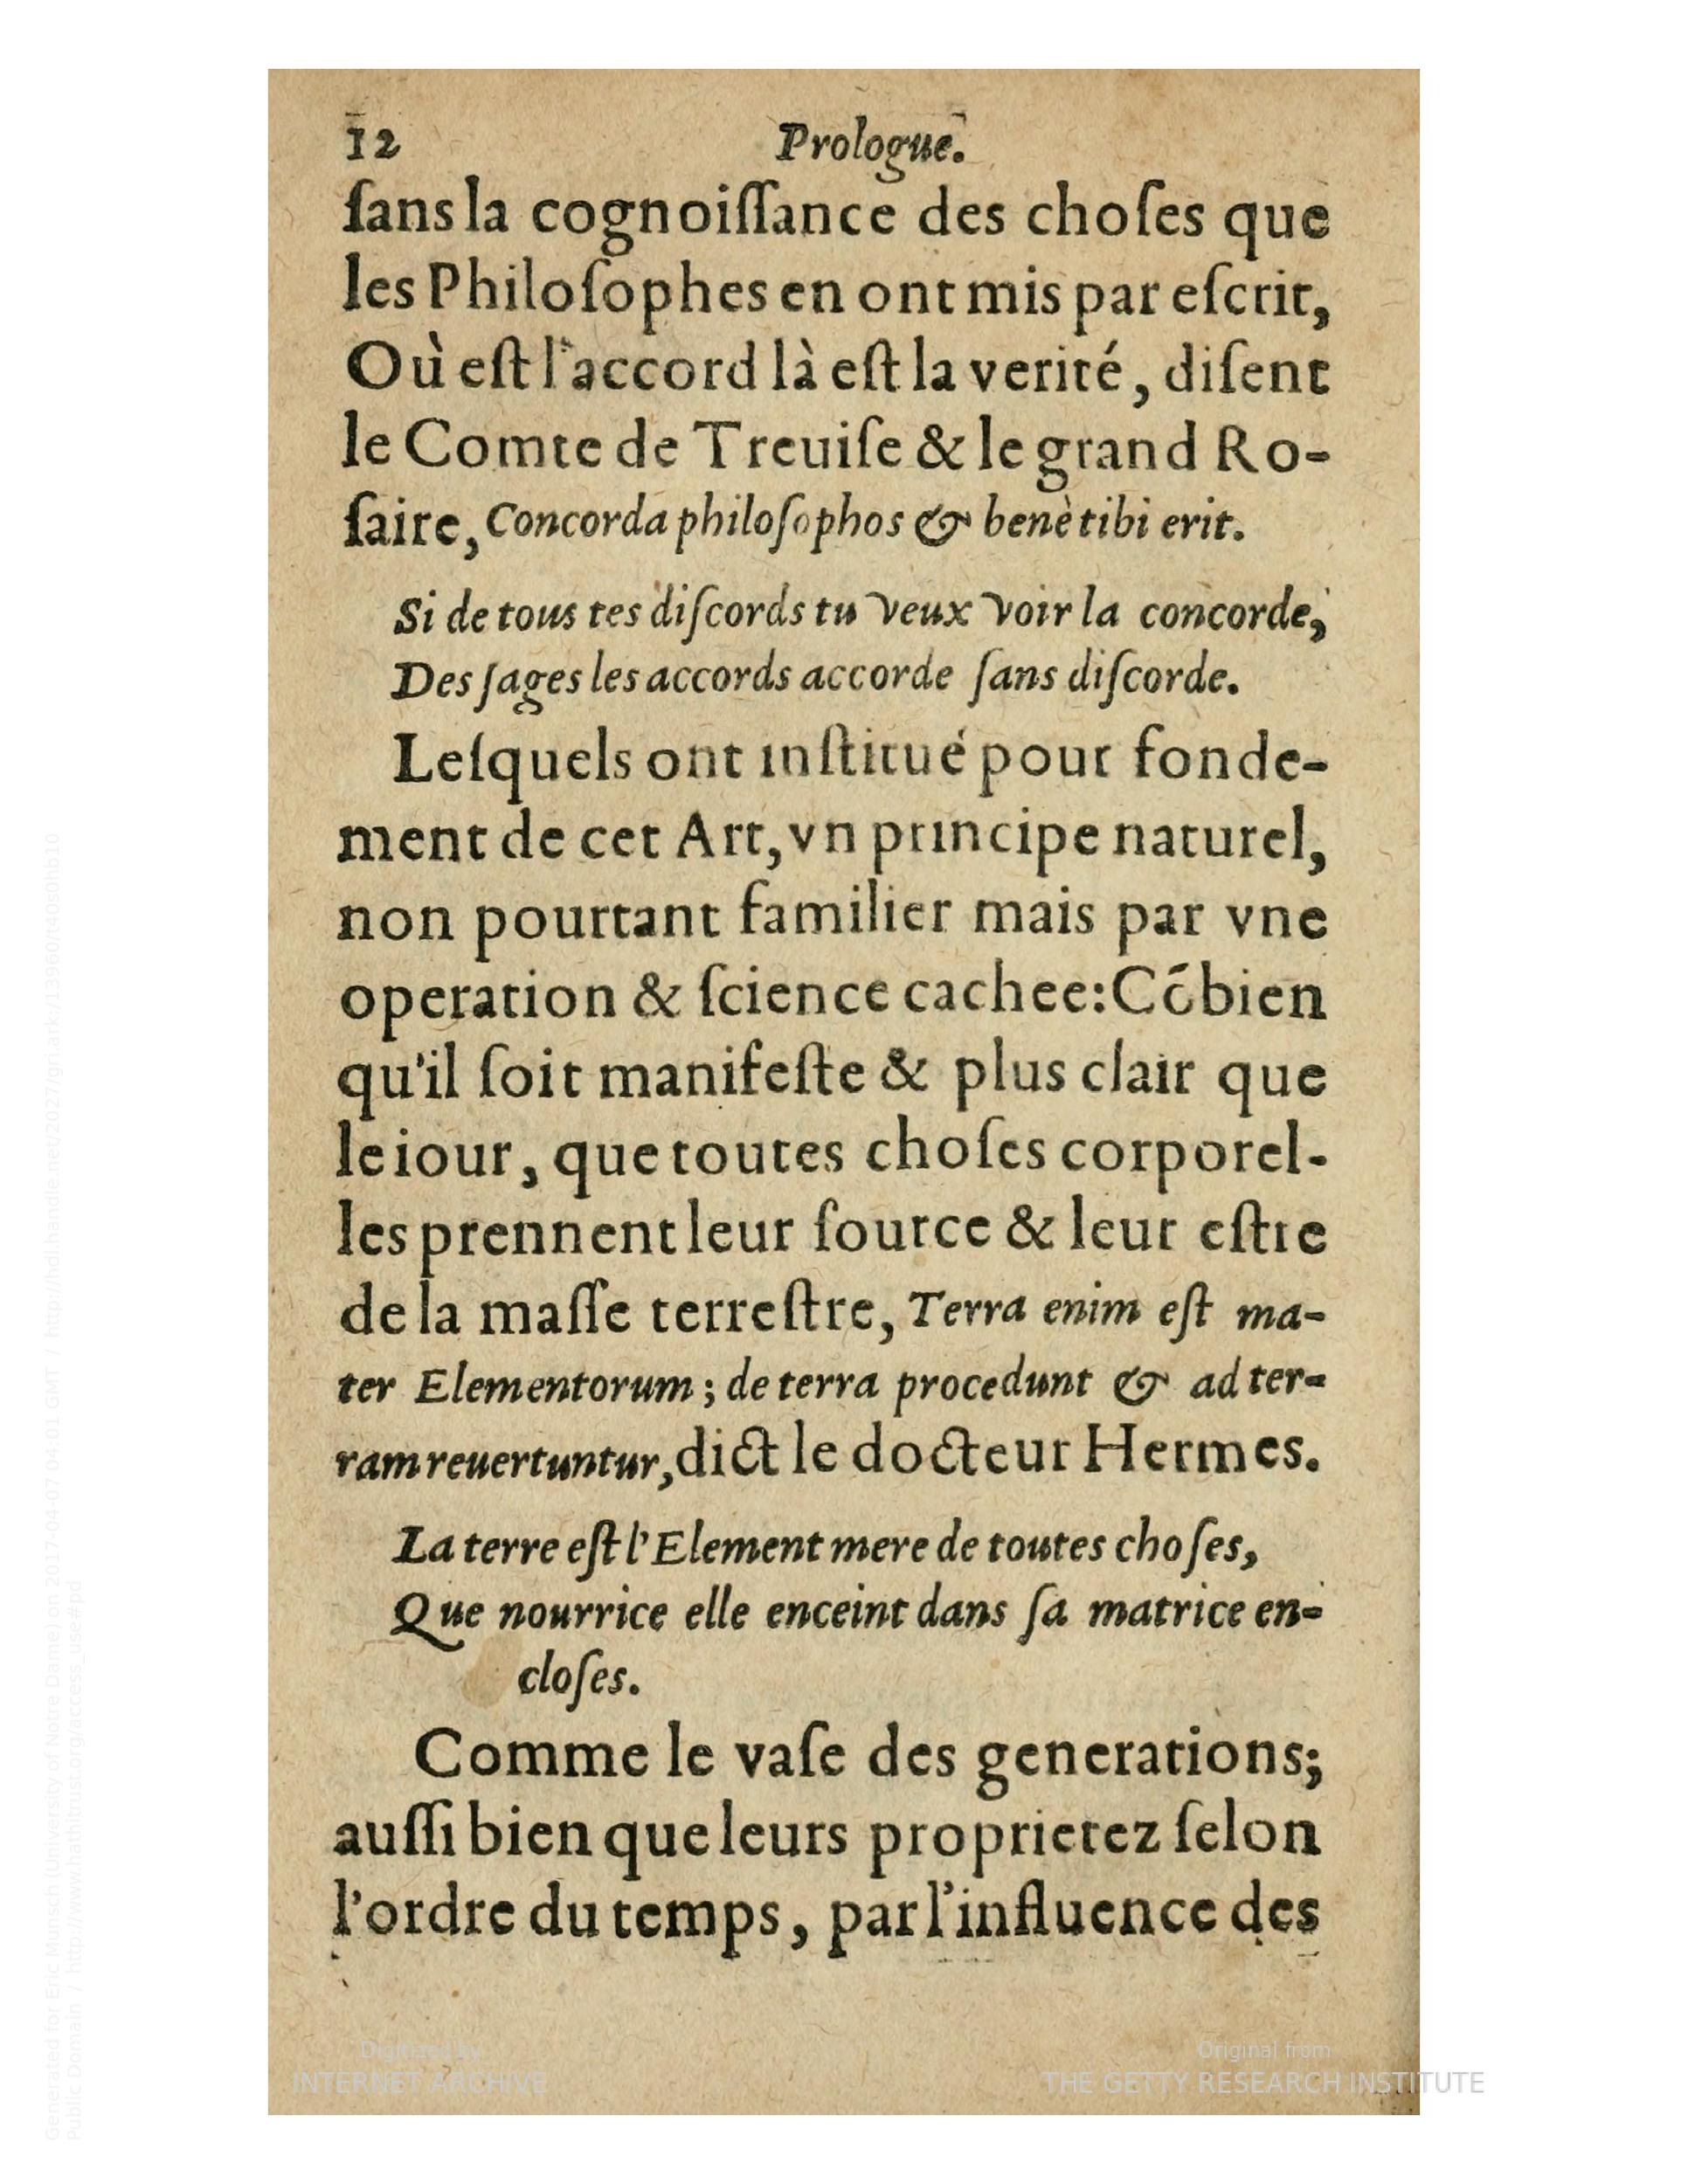 12 Prologue.
ſans la cognoiſſance des choſes que
les Philoſophes en ont mis par eſcrit,
Où eſt l'accord là eſt la verité, diſent
le Comte de Treuiſe & le grand Ro-
ſaire, Concorda philoſophos & benè tibi erit.
Si de tous tes diſcords tu veux voir la concorde,
Des ſages les accords accorde ſans diſcorde.
Leſquels ont inſtitué pour fonde-
ment de cet Art, vn principe naturel,
non pourtant familier mais par vne
operation & ſcience cachee: Cōbien
qu'il ſoit manifeſte & plus clair que
le iour, que toutes choſes corporel-
les prennent leur ſource & leur eſtre
de la maſſe terreſtre, Terra enim eſt ma-
ter Elementorum; de terra procedunt & ad ter-
ram reuertuntur, dict le docteur Hermes.
La terre eſt l'Element mere de toutes choſes,
Que nourrice elle enceint dans ſa matrice en-
cloſes.
Comme le vaſe des generations;
auſſi bien que leurs proprietez ſelon
l'ordre du temps, par l'influence des
Digitized by
INTERNET ARCHIVE
Original from
THE GETTY RESEARCH INSTITUTE
Generated for Eric Munsch (University of Notre Dame) on 2017-04-07 04:01 GMT / http://hdl.handle.net/2027/gri.ark:/13960/t40s0hb10
Public Domain / http://www.hathitrust.org/access_use#pd